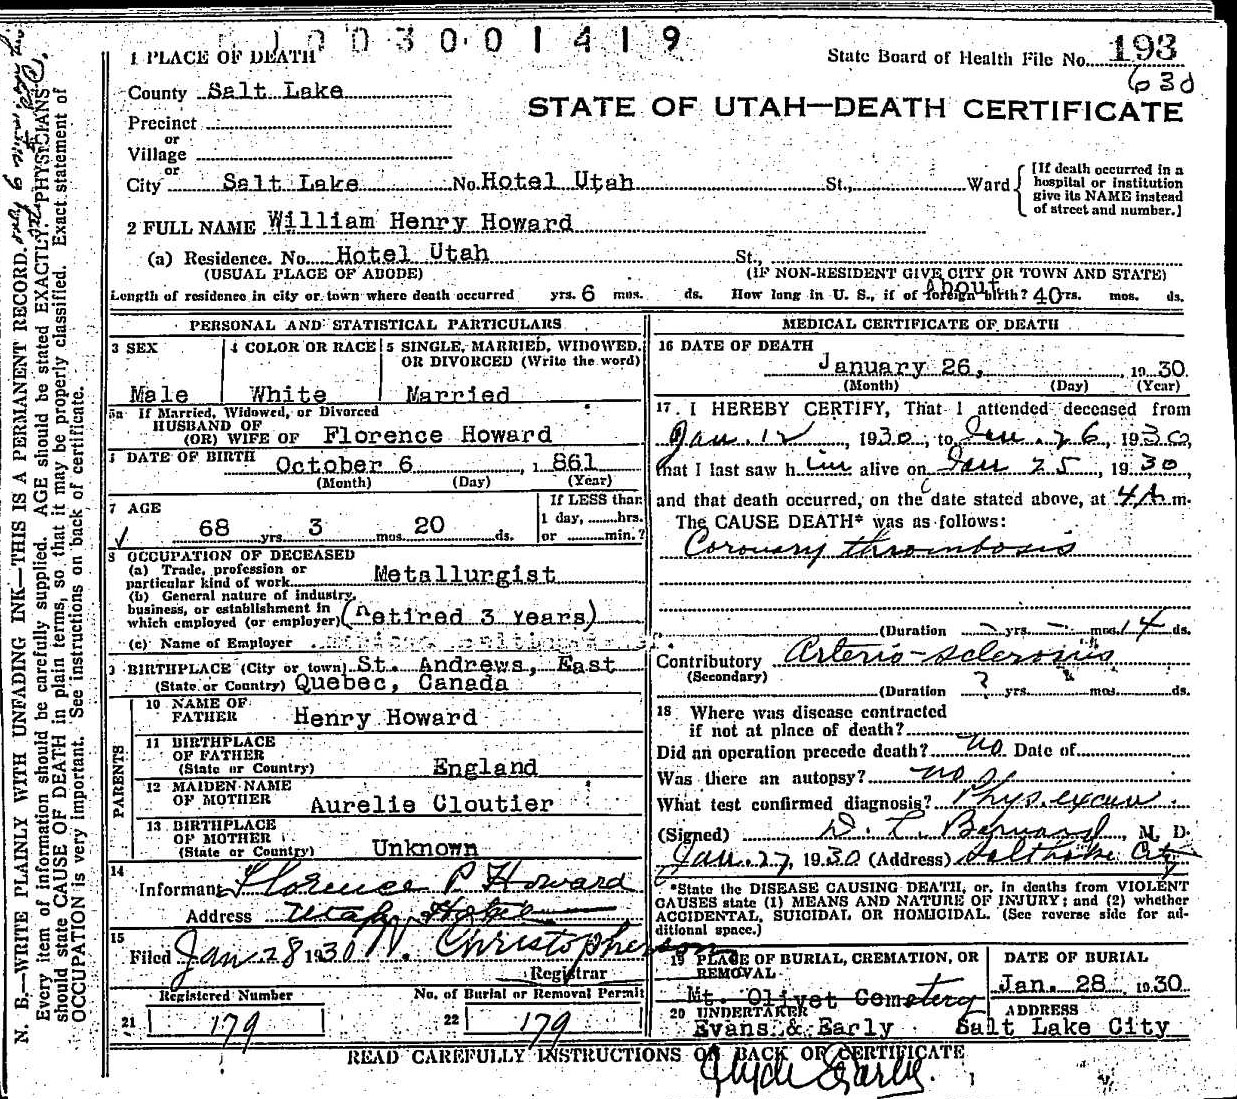 1003001419
1 PLACE OF DEATH
State Board of Health File No. 193
630
County Salt Lake
STATE OF UTAH—DEATH CERTIFICATE
Precinct
or
Village
or
City Salt Lake No. Hotel Utah St., Ward
[If death occurred in a
hospital or institution
give its NAME instead
of street and number.]
2 FULL NAME William Henry Howard
(a) Residence. No. Hotel Utah St.,
(USUAL PLACE OF ABODE) (IF NON-RESIDENT GIVE CITY OR TOWN AND STATE)
Length of residence in city or town where death occurred yrs. 6 mos. ds. How long in U. S., if of foreign birth? About 40 yrs. mos. ds.
PERSONAL AND STATISTICAL PARTICULARS
3 SEX
Male
4 COLOR OR RACE
White
5 SINGLE, MARRIED, WIDOWED,
OR DIVORCED (Write the word)
Married
5a If Married, Widowed, or Divorced
HUSBAND OF
(OR) WIFE OF Florence Howard
DATE OF BIRTH October 6, 1861
(Month) (Day) (Year)
7 AGE
68 yrs. 3 mos. 20 ds.
If LESS than
1 day, hrs.
or min.?
8 OCCUPATION OF DECEASED
(a) Trade, profession or
particular kind of work Metallurgist
(b) General nature of industry,
business, or establishment in
which employed (or employer) (retired 3 years)
(c) Name of Employer
9 BIRTHPLACE (City or town) St. Andrews, East
(State or Country) Quebec, Canada
PARENTS
10 NAME OF
FATHER Henry Howard
11 BIRTHPLACE
OF FATHER
(State or Country) England
12 MAIDEN NAME
OF MOTHER Aurelie Cloutier
13 BIRTHPLACE
OF MOTHER
(State or Country) Unknown
14
Informant Florence P Howard
Address Utah Hotel
15
Filed Jan 28 1930 N. Christopherson
Registrar
Registered Number
21 179
No. of Burial or Removal Permit
22 179
MEDICAL CERTIFICATE OF DEATH
16 DATE OF DEATH
January 26, 1930
(Month) (Day) (Year)
17. I HEREBY CERTIFY, That I attended deceased from
Jan. 12, 1930, to Jan. 26, 1930,
that I last saw him alive on Jan 25, 1930,
and that death occurred, on the date stated above, at 4 A. m.
The CAUSE DEATH* was as follows:
Coronary thrombosis
(Duration - yrs. - mos. 14 ds.
Contributory Arterio-sclerosis
(Secondary)
(Duration ? yrs. mos. ds.
18 Where was disease contracted
if not at place of death?
Did an operation precede death? no Date of
Was there an autopsy? no
What test confirmed diagnosis? Phys. exam
(Signed) , M. D.
Jan. 27, 1930 (Address) Salt Lake City
*State the DISEASE CAUSING DEATH, or, in deaths from VIOLENT
CAUSES state (1) MEANS AND NATURE OF INJURY; and (2) whether
ACCIDENTAL, SUICIDAL OR HOMICIDAL. (See reverse side for ad-
ditional space.)
19 PLACE OF BURIAL, CREMATION, OR
REMOVAL
Mt. Olivet Cemetery
DATE OF BURIAL
Jan. 28 1930
20 UNDERTAKER
Evans & Early
ADDRESS
Salt Lake City
READ CAREFULLY INSTRUCTIONS ON BACK OF CERTIFICATE
Clyde Early
N. B.—WRITE PLAINLY WITH UNFADING INK—THIS IS A PERMANENT RECORD.
Every item of information should be carefully supplied. AGE should be stated EXACTLY. PHYSICIANS
should state CAUSE OF DEATH in plain terms, so that it may be properly classified. Exact statement of
OCCUPATION is very important. See instructions on back of certificate.